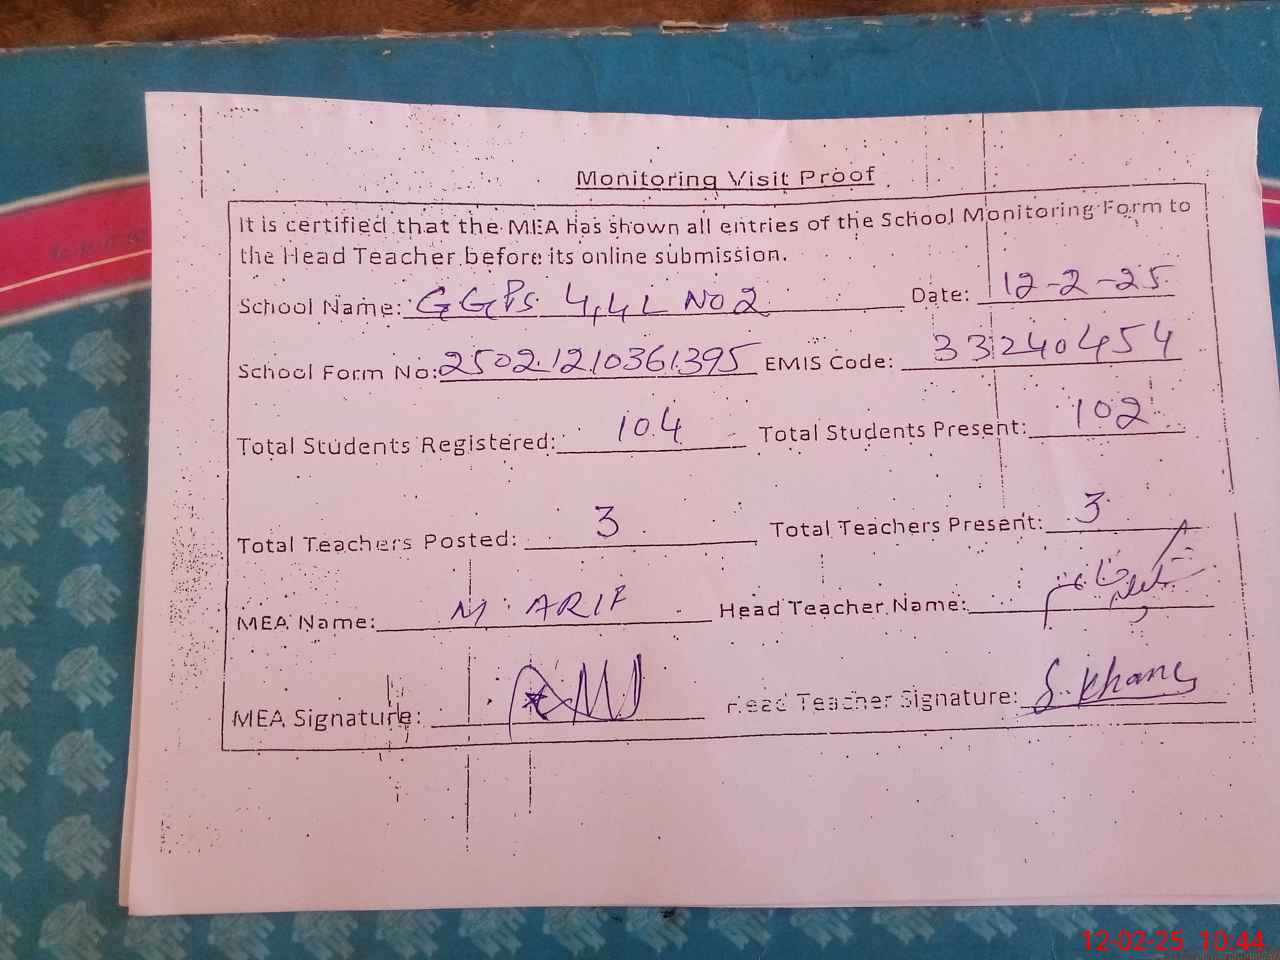 Monitoring Visit Proof
It is certified that the MEA has shown all entries of the School Monitoring Form to
the Head Teacher before its online submission.
School Name: GGPS 4,4L No 2 Date: 12-2-25
School Form No: 2502.1210361395 EMIS Code: 33240454
Total Students Registered: 104 Total Students Present: 102
Total Teachers Posted: 3 Total Teachers Present: 3
MEA Name: M. ARIF Head Teacher Name:
MEA Signature: Head Teacher Signature: S. Khanc
12-02-25 10:44